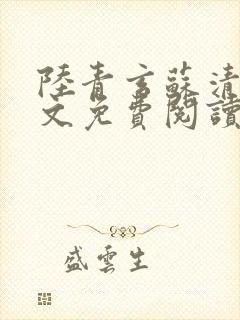 陸青言蘇清
文免費閱讀
盛雲生